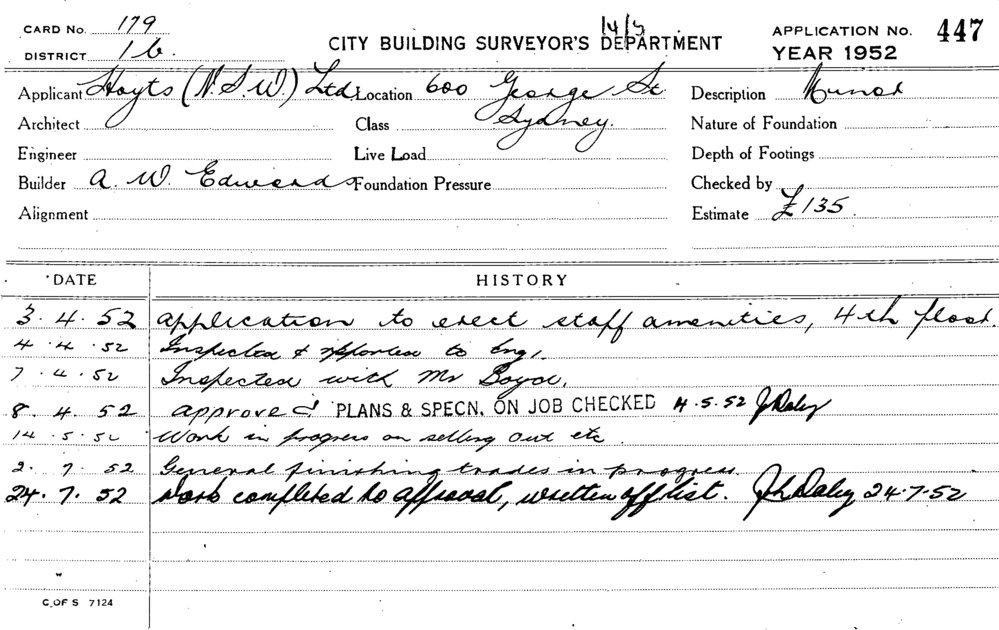 CARD No. 179
14/5
CITY BUILDING SURVEYOR'S DEPARTMENT
APPLICATION No. 447
DISTRICT 16.
YEAR 1952
Applicant Hoyts (N.S.W.) Ltd. Location 600 George St. Description Minor
Architect Class Sydney. Nature of Foundation
Engineer Live Load Depth of Footings
Builder A. W. Edwards Foundation Pressure Checked by
Alignment Estimate £135.
DATE HISTORY
3. 4. 52 application to erect staff amenities, 4th floor.
4. 4. 52 Inspected & reported to Eng.
7. 4. 52 Inspected with Mr Boyd.
8. 4. 52 approved PLANS & SPECN. ON JOB CHECKED 14.5.52 J Daley
14.5.52 Work in progress on setting out etc.
2. 7. 52 General finishing trades in progress.
24.7.52 Work completed to approval, written off list. J Daley 24.7.52
C. OF S 7124